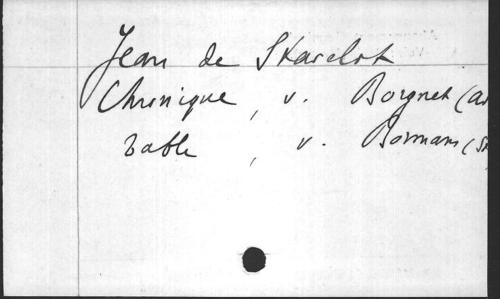 Jean de Stavelot
Chronique, v. Borgnet (Ad
Table, v. Bormans (St